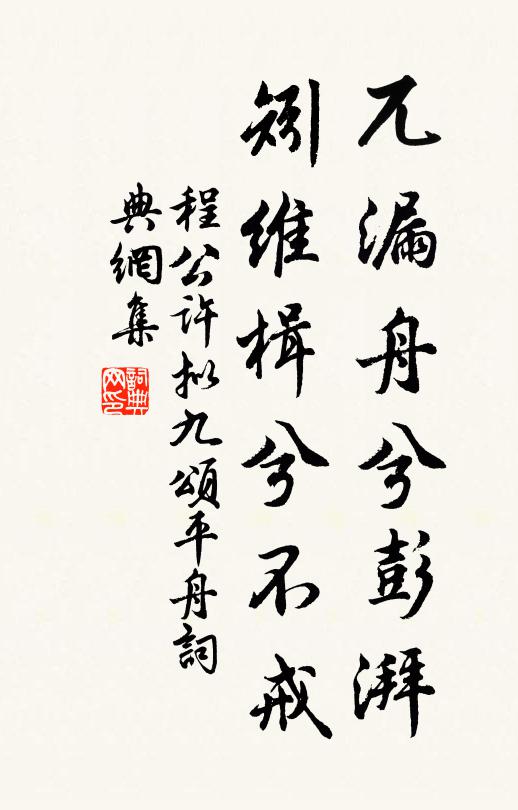 兀漏舟兮彭湃
矧維楫兮不戒
程公許拟九頌平舟詞
典網集
詞典網印